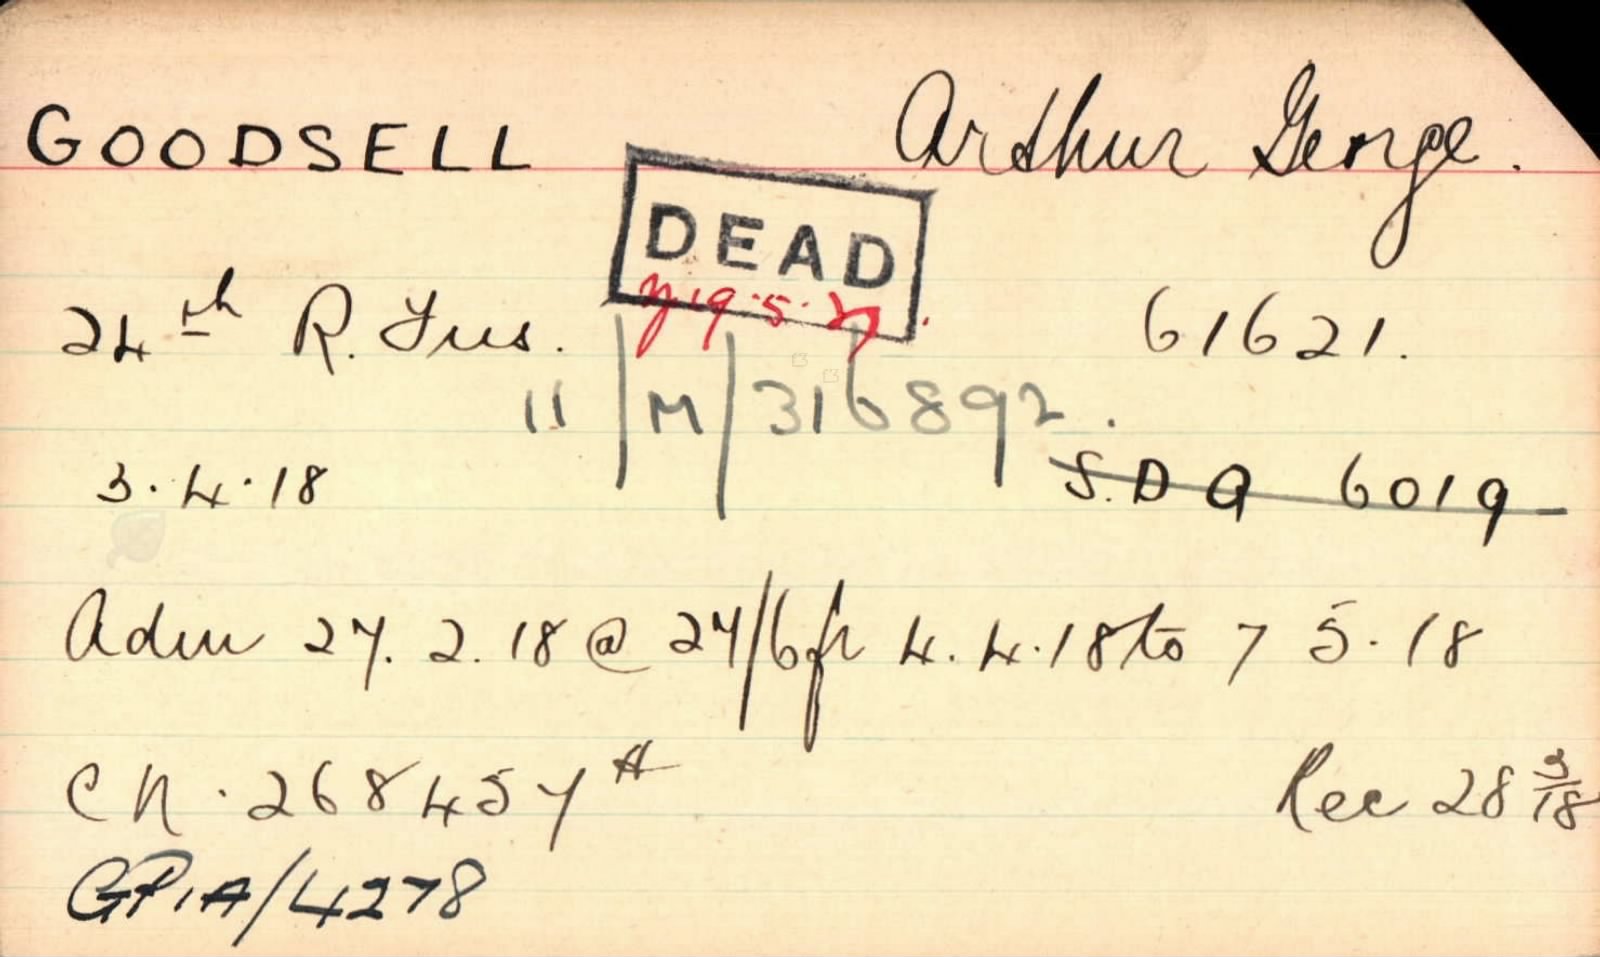 GOODSELL Arthur George.
DEAD
19.5.27.
24th R. Fus. 61621.
11/M/316892.
3.4.18 S.D.A 6019
Adm 27.2.18 @ 27/6 fr 4.4.18 to 7 5.18
CN. 268457 A Rec 28 3/18
GP.1A/4278